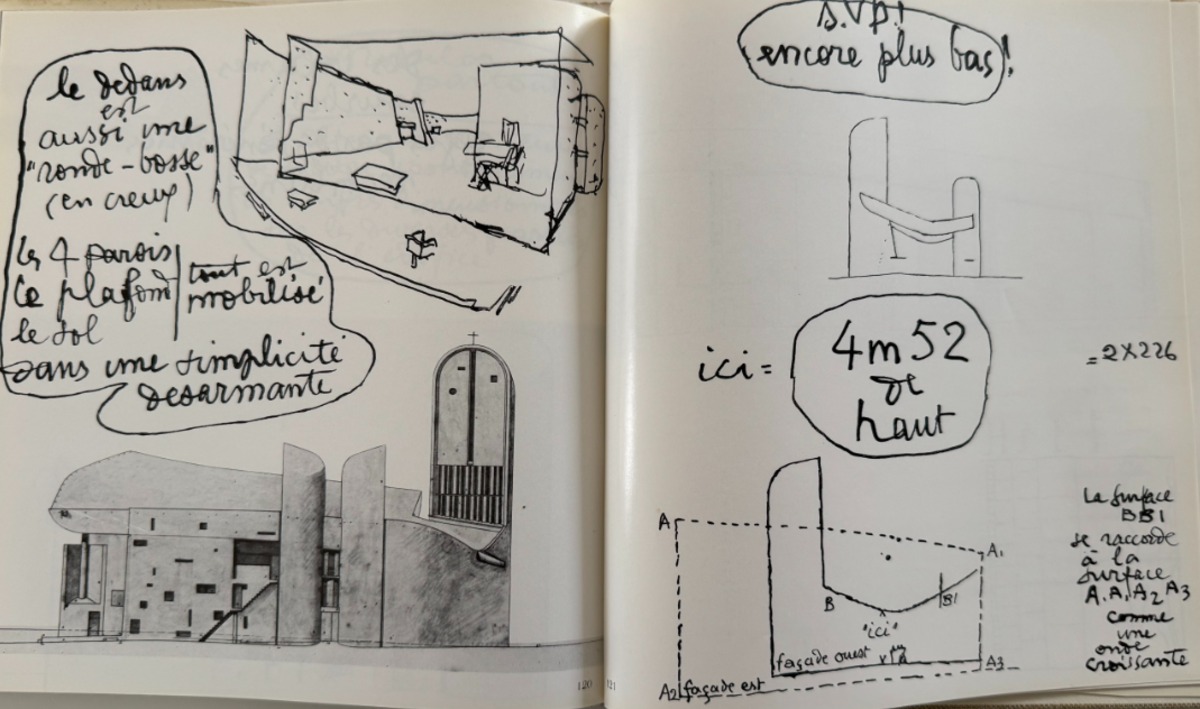 le dedans
est
aussi une
"ronde-bosse"
(en creux)
les 4 parois
le plafond
le sol
tout est
mobilisé
dans une simplicité
desarmante
120
S.V.P!
encore plus bas!
ici =
4m52
de
haut
= 2x226
A
A1
B
B1
"ici"
façade ouest
A3
A2
façade est
La surface
BB1
se raccorde
à la
surface
A.A1A2A3
comme
une
onde
croissante
121